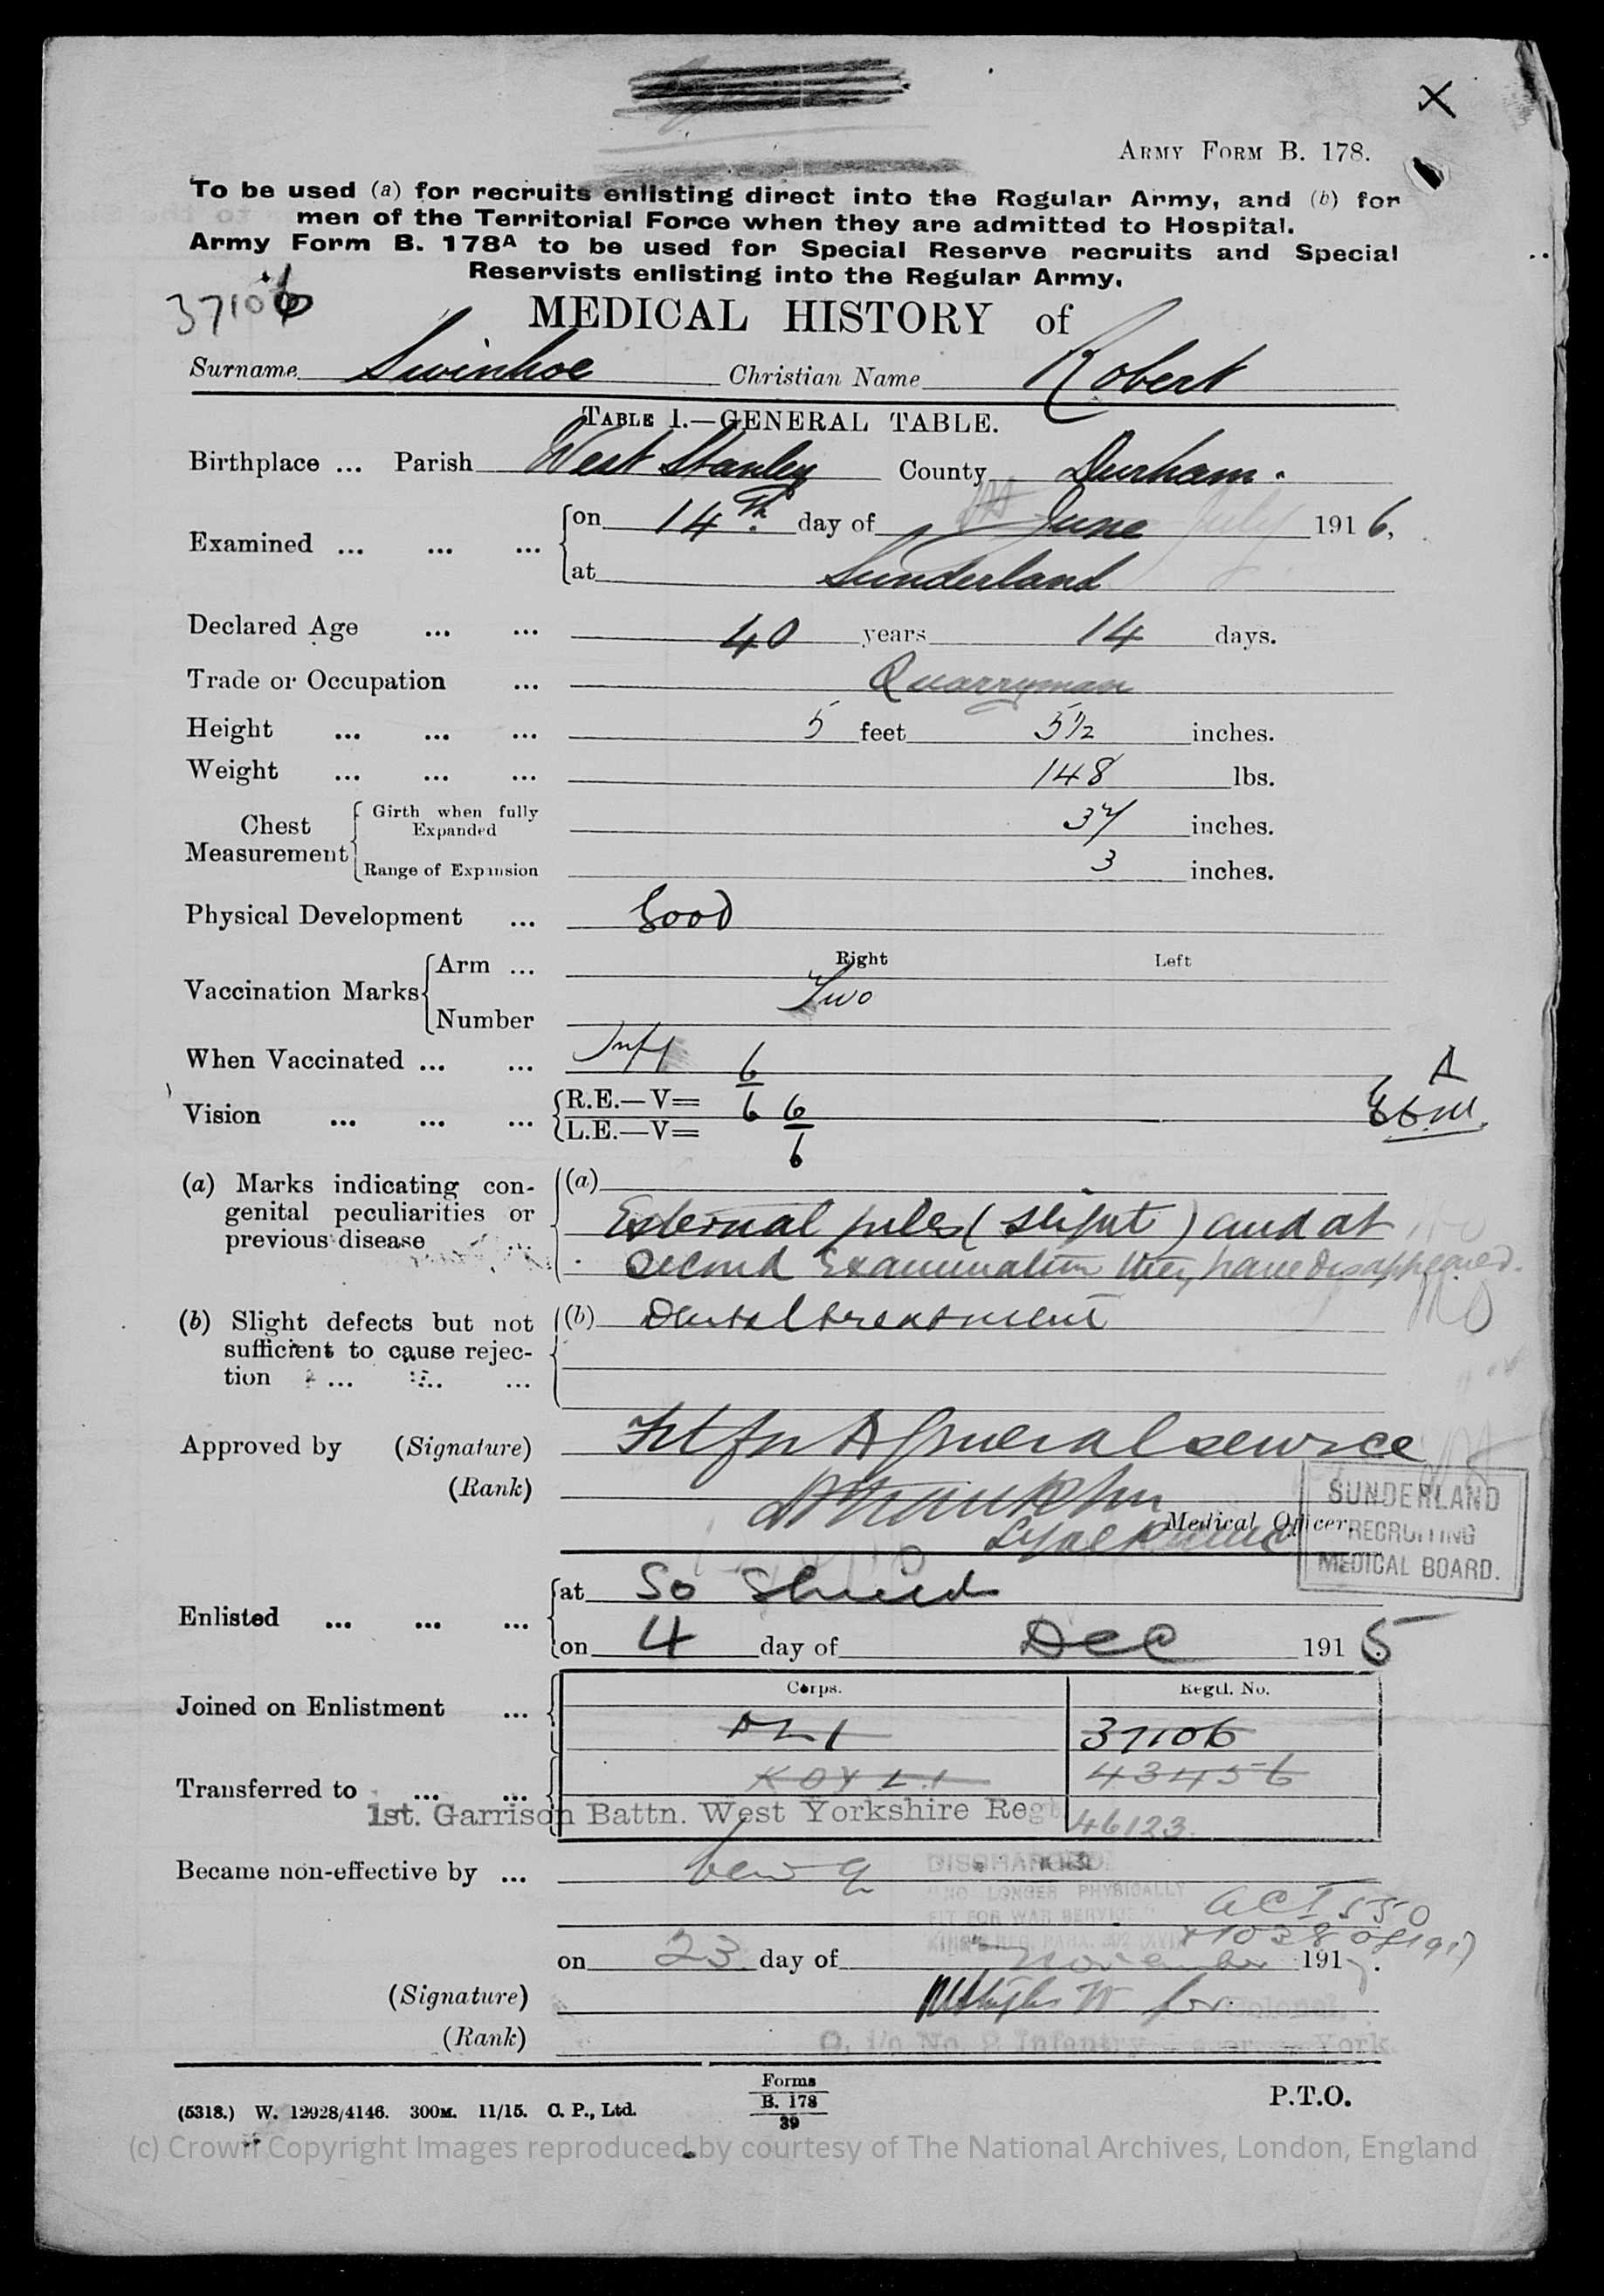 ARMY FORM B. 178.
To be used (a) for recruits enlisting direct into the Regular Army, and (b) for
men of the Territorial Force when they are admitted to Hospital.
Army Form B. 178A to be used for Special Reserve recruits and Special
Reservists enlisting into the Regular Army.
37106
MEDICAL HISTORY of
Surname Swinhoe Christian Name Robert
TABLE I.—GENERAL TABLE.
Birthplace ... Parish West Stanley County Durham.
Examined ... ... ... on 14th day of June July 1916,
at Sunderland
Declared Age ... ... 40 years 14 days.
Trade or Occupation ... Quarryman
Height ... ... ... 5 feet 5 1/2 inches.
Weight ... ... ... 148 lbs.
Chest Measurement Girth when fully Expanded 37 inches.
Range of Expansion 3 inches.
Physical Development ... Good
Right Left
Vaccination Marks Arm ...
Number Two
When Vaccinated ... ... Inf
A
Vision ... ... ... R.E.—V= 6/6
L.E.—V= 6/6
(a) Marks indicating con-
genital peculiarities or
previous disease ...
(a) External piles (slight) and at
second Examination they have disappeared.
(b) Slight defects but not
sufficient to cause rejec-
tion ... ... ...
(b) Dental treatment
Approved by (Signature) Fit for A General service
(Rank)
Medical Officer
SUNDERLAND
RECRUITING
MEDICAL BOARD.
Enlisted ... ... ... at So Shields
on 4 day of Dec 1915
Corps. Regtl. No.
Joined on Enlistment ... DLI 37106
Transferred to ... ... KOYLI 43456
1st. Garrison Battn. West Yorkshire Regt 46123.
Became non-effective by ...
DISCHARGED
"NO LONGER PHYSICALLY
FIT FOR WAR SERVICE"
KING'S REG. PARA. 392 (XVI)
ACI 550
+ 1038 of 1917
on 23 day of November 1917.
(Signature) for Colonel,
(Rank) O. i/c No. 2 Infantry York.
(5318.) W. 12928/4146. 300M. 11/15. C. P., Ltd.
Forms
B. 178
39
P.T.O.
(c) Crown Copyright Images reproduced by courtesy of The National Archives, London, England